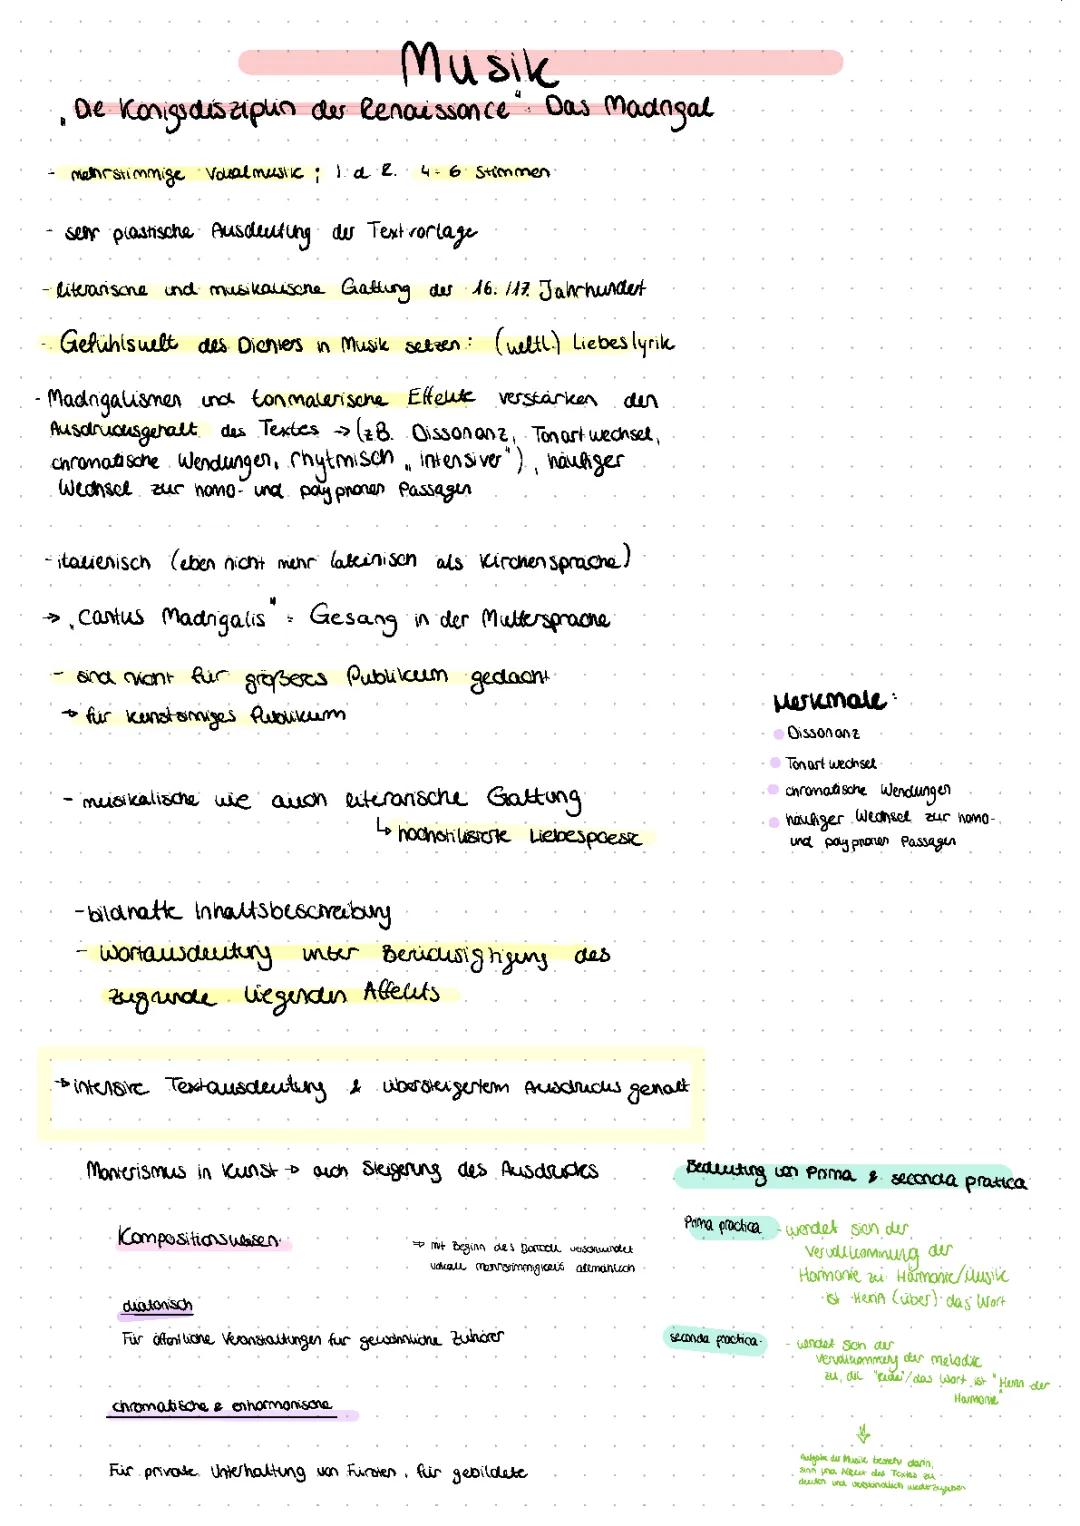 Musik
„Die Königsdisziplin der Renaissance": Das Madrigal
- mehrstimmige Vokalmusik ; i. d. R. 4-6 Stimmen
- sehr plastische Ausdeutung der Textvorlage
- literarische und musikalische Gattung der 16. /17. Jahrhundert
- Gefühlswelt des Dichters in Musik setzen: (weltl.) Liebeslyrik
- Madrigalismen und tonmalerische Effekte verstärken den
Ausdrucksgehalt des Textes → (z.B. Dissonanz, Tonartwechsel,
chromatische Wendungen, rhytmisch „intensiver"), häufiger
Wechsel zur homo- und polyphonen Passagen
- italienisch (eben nicht mehr lateinisch als Kirchensprache)
→ „Cantus Madrigalis" = Gesang in der Muttersprache
- sind nicht für größeres Publikum gedacht
→ für kunstsinniges Publikum
- musikalische wie auch literarische Gattung
↳ hochstilisierte Liebespoesie
Merkmale:
Dissonanz
Tonartwechsel
chromatische Wendungen
häufiger Wechsel zur homo-
und polyphonen Passagen
- bildhafte Inhaltsbeschreibung
- Wortausdeutung unter Berücksigtigung des
zugrunde liegenden Affekts
→ intensive Textausdeutung & übersteigertem Ausdrucksgehalt
Manierismus in Kunst → auch Steigerung des Ausdruckes
Kompositionsweisen
⇒ mit Beginn des Barock verschwindet
vokale Mehrstimmigkeit allmählich
diatonisch
Für öffentliche Veranstaltungen für gewöhnliche Zuhörer
chromatische & enharmonische
Für private Unterhaltung von Fürsten, für gebildete
Bedeutung von Prima & seconda pratica
Prima practica - wendet sich der
Vervollkommnung der
Harmonie zu. Harmonie/Musik
ist Herrin (über) das Wort
seconda practica - wendet sich der
Vervollkommnung der Melodie
zu, die "Rede"/das Wort ist "Herrin der
Harmonie"
↓
Aufgabe der Musik besteht darin,
Sinn und Affekt des Textes zu
deuten und verständlich wiederzugeben